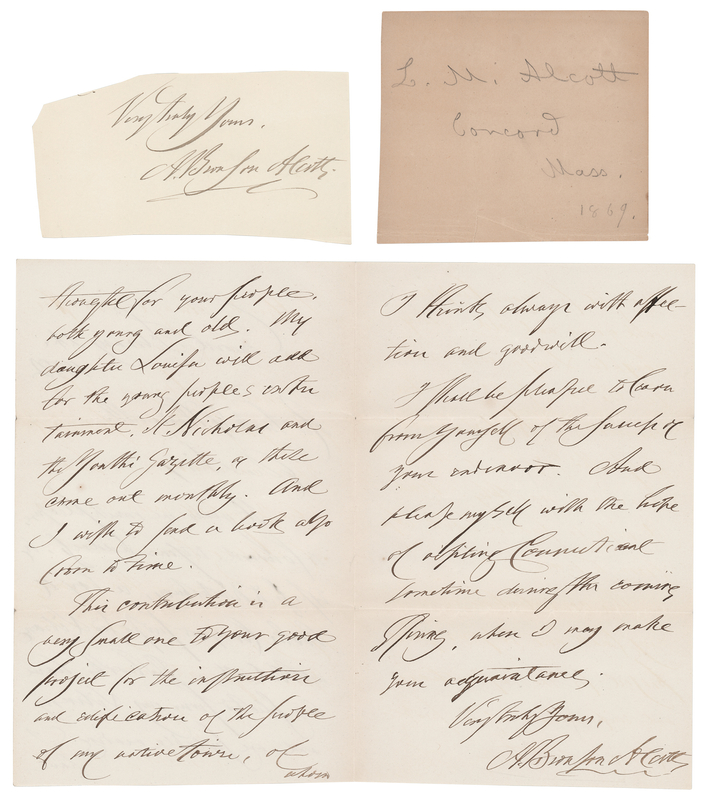 Very truly Yours,
A. Bronson Alcott.
L. M. Alcott
Concord
Mass.
1869.
thought for your people,
both young and old. My
daughter Louisa will add
for the young peoples enter
tainment, St. Nicholas and
the Youths Gazette, as these
come out monthly. And
I wish to send a book also
from to time.
This contribution is a
very small one to your good
project for the instruction
and edification of the people
of my native town, of
whom
I think always with affec-
tion and goodwill.
I shall be pleased to learn
from yourself of the success of
your endeavor. And
please myself with the hope
of visiting Connecticut
sometime during the coming
Spring, when I may make
your acquaintance.
Very truly Yours,
A. Bronson Alcott